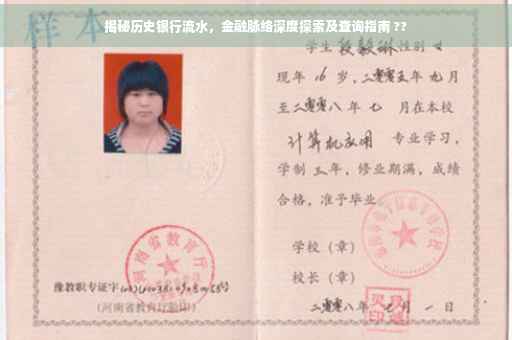 揭秘历史银行流水，金融脉络深度探索及查询指南 ??
样本
河南省教育厅
豫教职专证字
(河南省教育厅验印)
学生段毅琳性别女
现年16岁，二零零五年九月
至二零零八年七月在本校
计算机应用 专业学习，
学制三年，修业期满，成绩
合格，准予毕业。
学校（章）
校长（章）
二零零八年七月一日